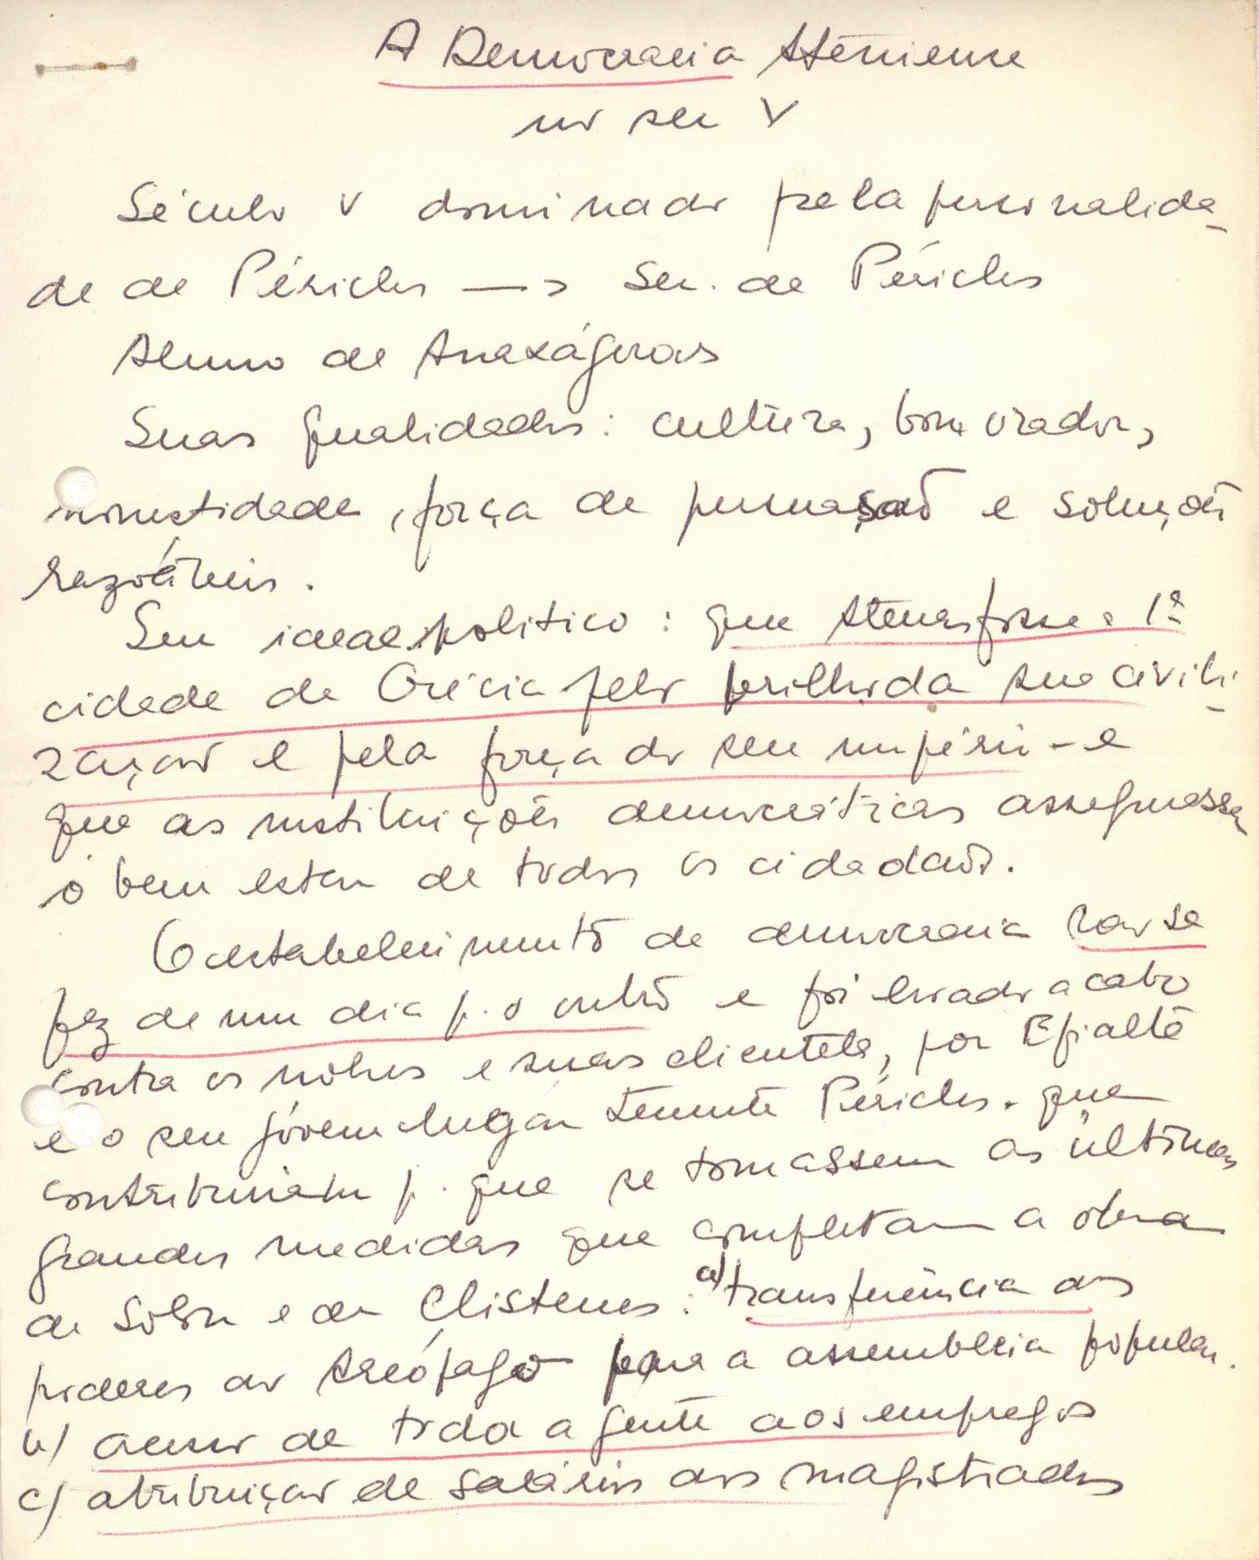 A Democracia Ateniense
no séc V
Século V dominado pela personalida-
de de Péricles —> Séc. de Péricles
Aluno de Anaxágoras
Suas qualidades: cultura, bom orador,
honestidade, força de persuasão e soluções
razoáveis.
Seu ideal político: que Atenas fosse a 1ª
cidade da Grécia pelo brilho da sua civili-
zação e pela força do seu império - e
que as instituições democráticas assegurassem
o bem estar de todos os cidadãos.
O estabelecimento da democracia não se
fez de um dia p. o outro e foi levado a cabo
contra os nobres e suas clientela, por Efialte
e o seu jóvem lugar tenente Péricles. que
contribuiram p. que se tomassem as últimas
grandes medidas que completam a obra
de Sólon e de Clistenes: a) transferência dos
poderes do Areópago para a assembleia popular.
b) acesso de toda a gente aos empregos
c) atribuição de salários aos magistrados